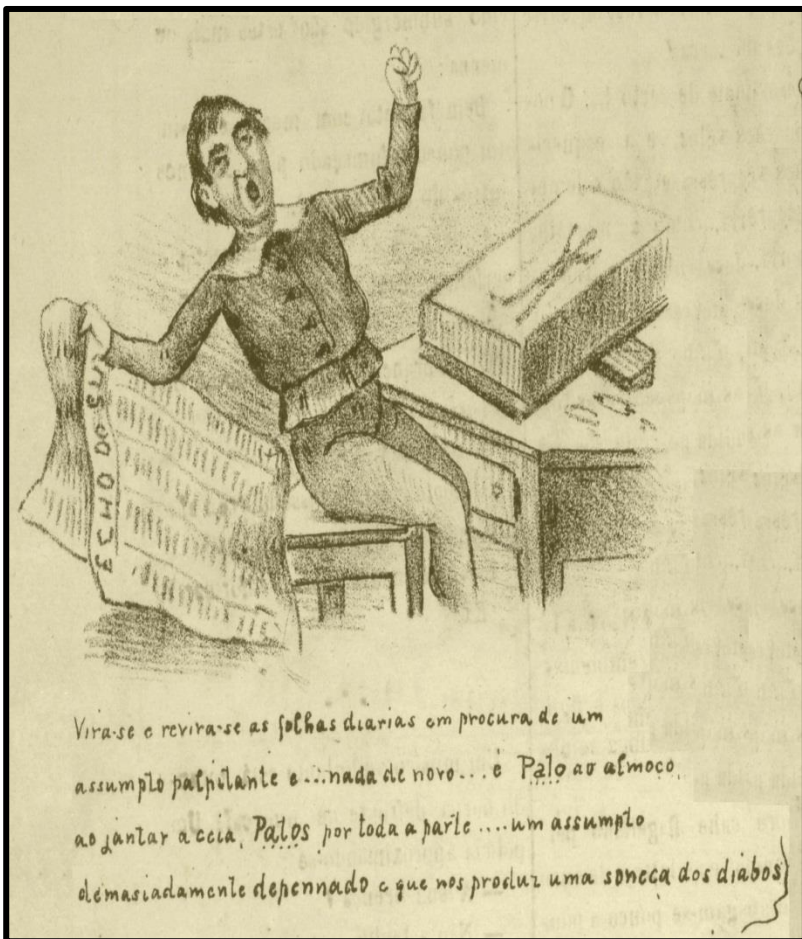 ECHO DO SUL
Vira-se e revira-se as folhas diarias em procura de um
assumpto palpitante e ...nada de novo... é Pato ao almoço,
ao jantar a ceia, Patos por toda a parte ....um assumpto
demasiadamente depennado e que nos produz uma soneca dos diabos